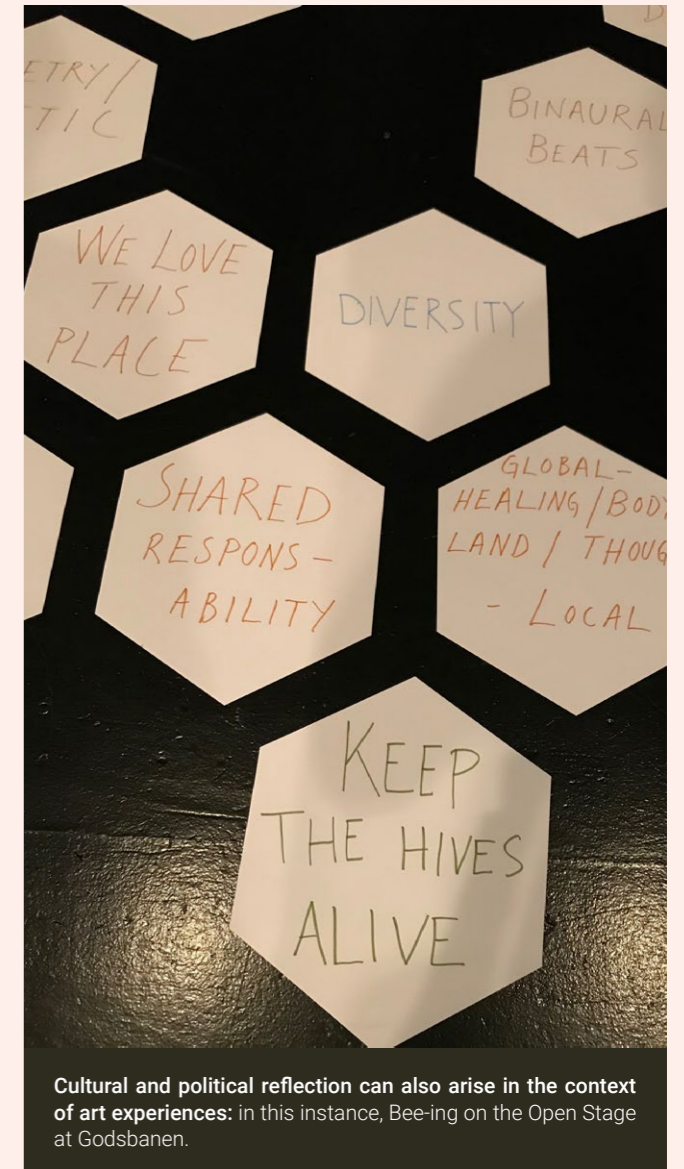 BINAURAL
BEATS
WE LOVE
THIS
PLACE
DIVERSITY
SHARED
RESPONS-
ABILITY
GLOBAL-
HEALING/BODY
LAND /
- LOCAL
KEEP
THE HIVES
ALIVE
Cultural and political reflection can also arise in the context
of art experiences: in this instance, Bee-ing on the Open Stage
at Godsbanen.